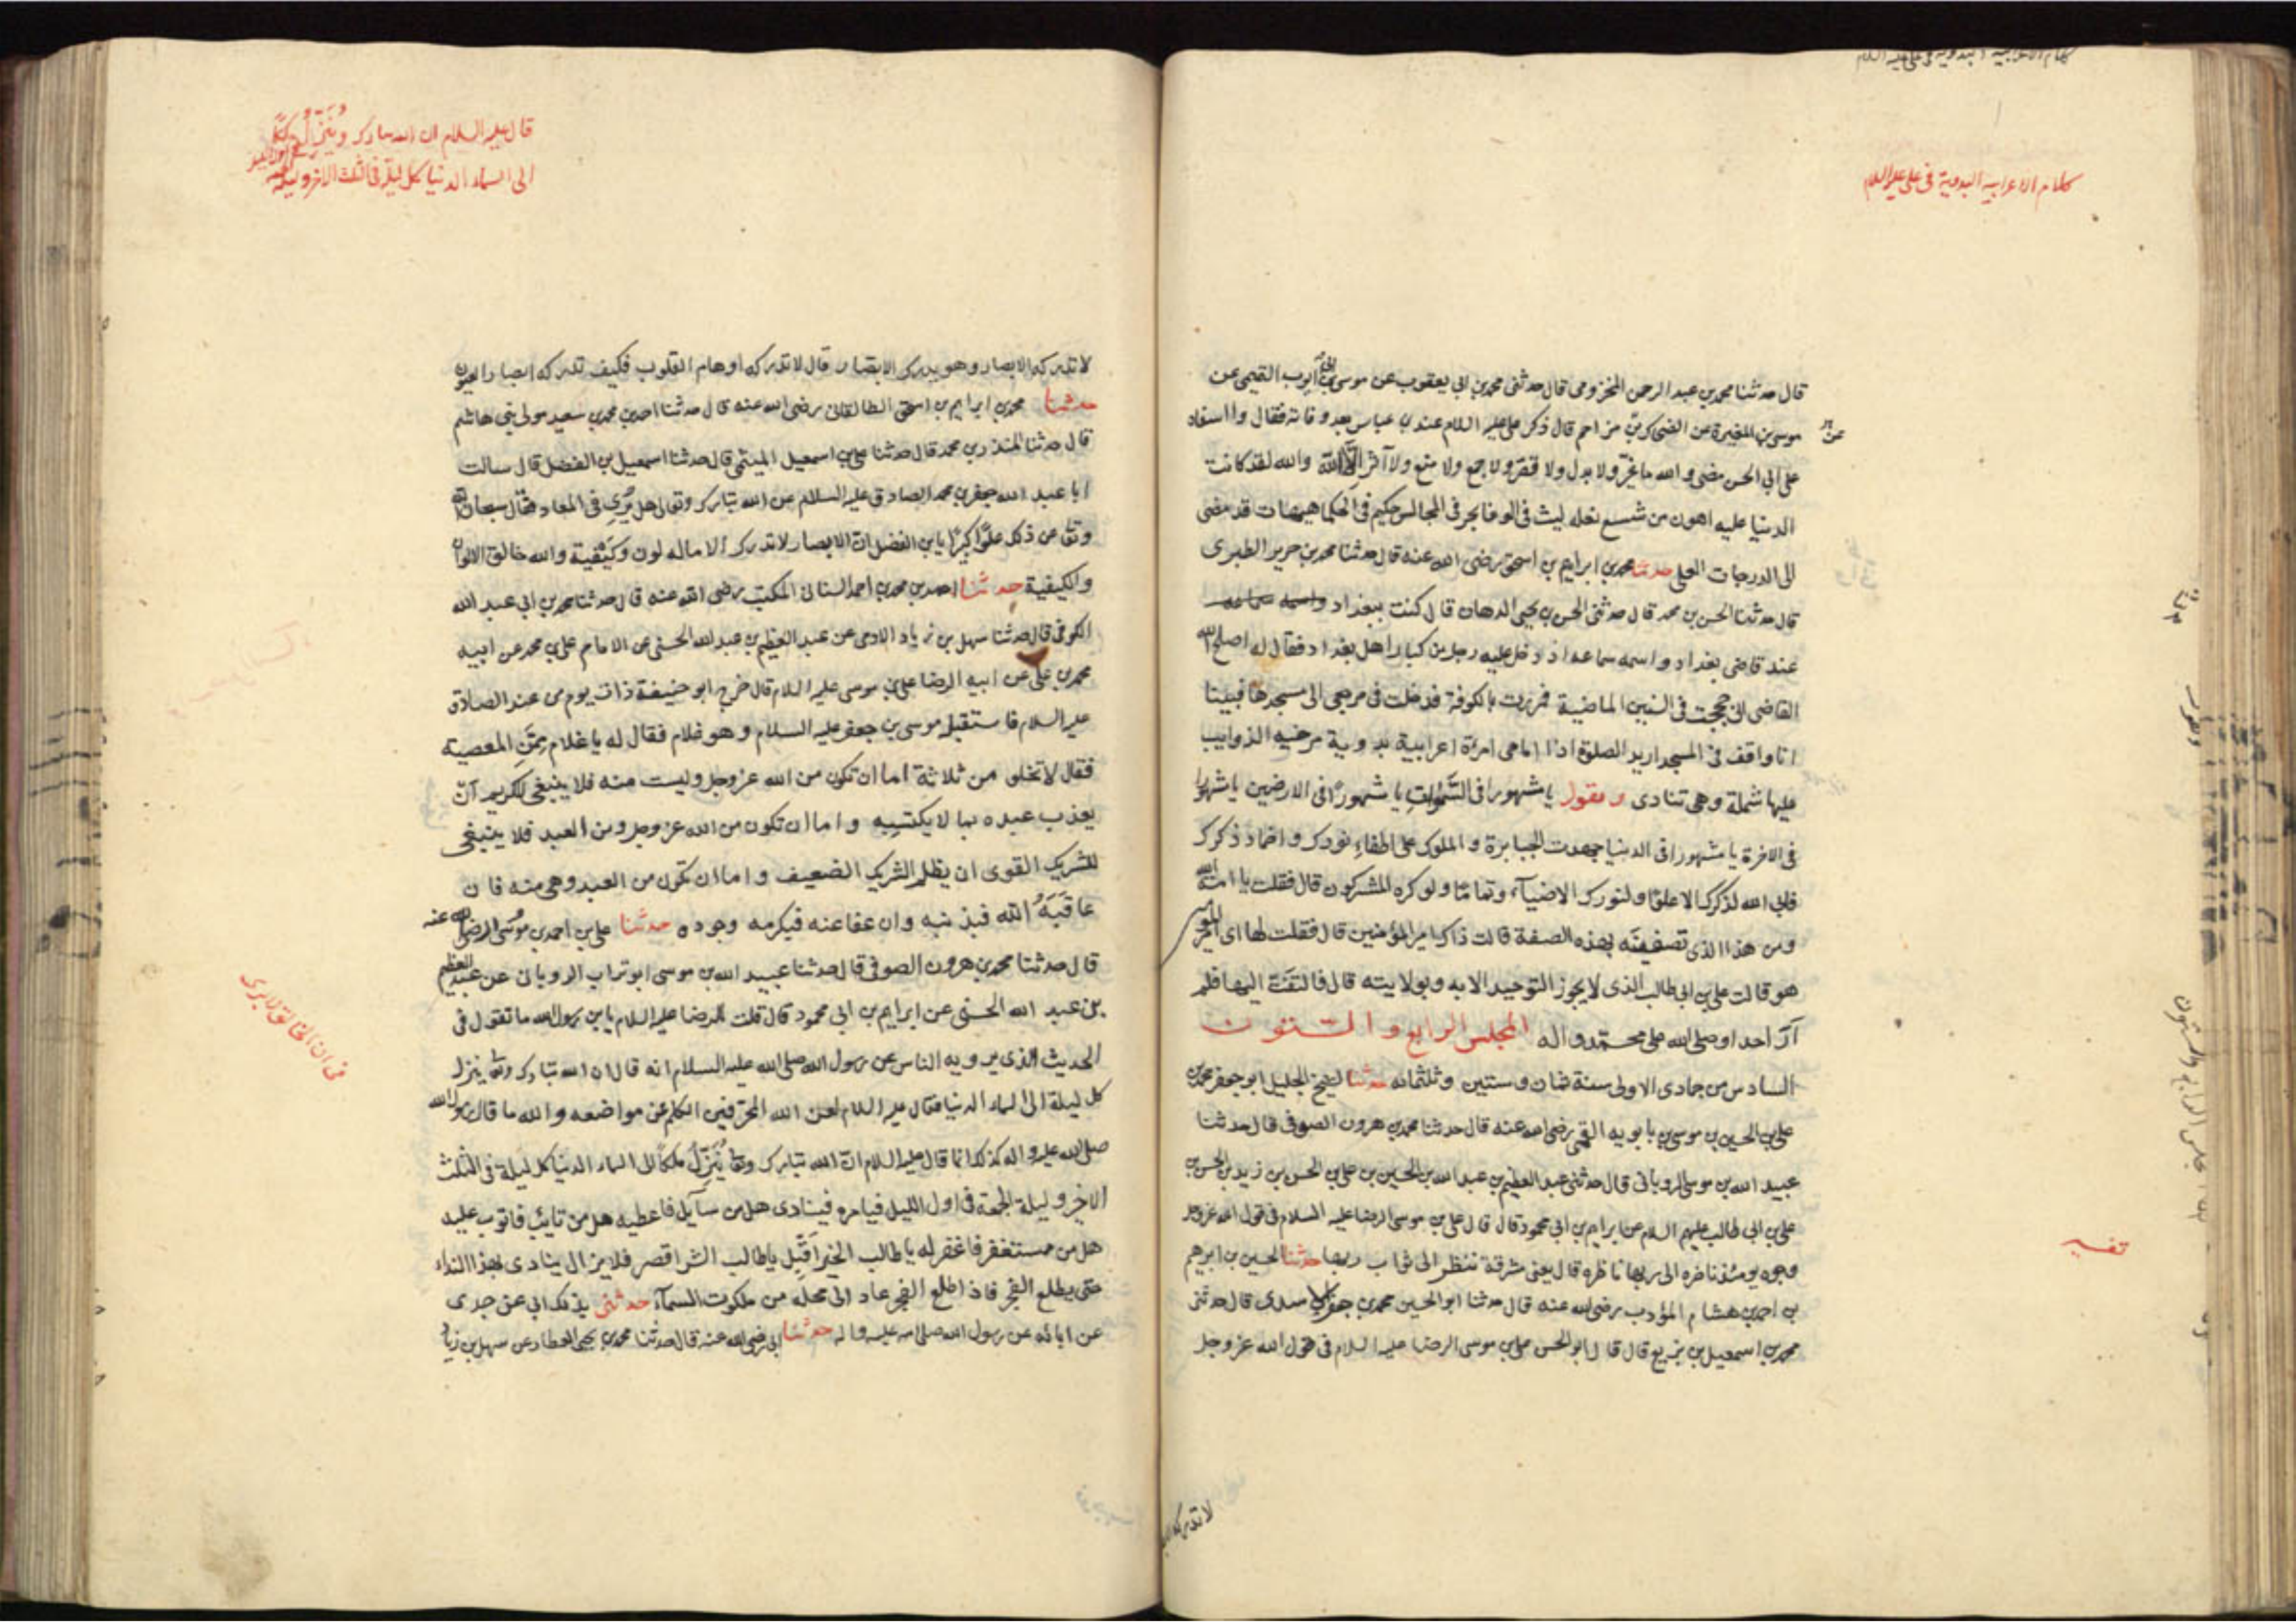 كلام الاعرابيه البدوية فى على عليه السلام
قال حدثنا محمد بن عبد الرحمن المخزومى قال حدثنى محمد بن ابى يعقوب عن موسى بن ابى ايوب التميمى عن
موسى بن المغيرة عن الضحاك بن مزاحم قال ذكر على عليه السلام عند ابن عباس بعد وفاته فقال وا اسفاه
على ابى الحسن مضى والله ما غيّر ولا بدل ولا قصّر ولا جمع ولا منع ولا آثر الا الله والله لقد كانت
الدنيا عليه اهون من شسع نعله ليث فى الوغا بحر فى المجالس حكيم فى الحكما هيهات قد مضى
الى الدرجات العلى حدثنا محمد بن ابراهيم بن اسحق رضى الله عنه قال حدثنا محمد بن جرير الطبرى
قال حدثنا الحسن بن محمد قال حدثنى الحسن بن يحيى الدهان قال كنت ببغداد واسمه سماعه
عند قاضى بغداد واسمه سماعه اذ دخل عليه رجل من كبار اهل بغداد فقال له اصلح الله
القاضى انى حججت فى السنين الماضية فمررت بالكوفة فدخلت فى مرجعى الى مسجدها فبينا
انا واقف فى المسجد اريد الصلوة اذا امامى امرأة اعرابية بدوية مرخيه الذوايب
عليها شملة وهى تنادى وتقول يا مشهورا فى السموات يا مشهورًا فى الارضين يا مشهورا
فى الاخرة يا مشهورا فى الدنيا جهدت الجبابرة والملوك على اطفاء نورك واخماد ذكرك
فابى الله لذكرك الا علوّا ولنورك الا ضياء وتمامًا ولو كره المشركون قال فقلت يا امة الله
ومن هذا الذى تصفينه بهذه الصفة قالت ذاك امير المؤمنين قال فقلت لها اى امير المؤمنين
هو قالت على بن ابى طالب الذى لا يجوز التوحيد الا به وبولايته قال فالتفتّ اليها فلم
آرَ احدا وصلى الله على محمد واله المجلس الرابع والستون
السادس من جمادى الاولى سنة ثمان وستين وثلثمائه حدثنا الشيخ الجليل ابو جعفر محمد بن
على بن الحسين بن موسى بن بابويه القمى رضى الله عنه قال حدثنا محمد بن هرون الصوفى قال حدثنا
عبيد الله بن موسى الرويانى قال حدثنى عبد العظيم بن عبد الله بن الحسين بن على بن الحسن بن زيد بن الحسن بن
على بن ابى طالب عليهم السلام عن ابراهيم بن ابى محمود قال قال على بن موسى الرضا عليه السلام فى قول الله عز وجل
وجوه يومئذ ناضره الى ربها ناظره قال يعنى مشرقة تنتظر الى ثواب ربها حدثنا الحسين بن ابرهيم
بن احمد بن هشام المؤدب رضى الله عنه قال حدثنا ابو الحسين محمد بن جعفر الاسدى قال حدثنى
محمد بن اسمعيل بن بزيع قال قال ابو الحسن على بن موسى الرضا عليه السلام فى قول الله عز وجل
تفسير
لا تدركه
قال عليه السلام ان الله تبارك وينزل ملكا
الى السماء الدنيا كل ليلة فى الثلث الاخر وليلة
لا تدركه الابصار وهو يدرك الابصار قال لا تدركه اوهام القلوب فكيف تدركه ابصار العيون
حدثنا محمد بن ابراهيم بن اسحق الطالقانى رضى الله عنه قال حدثنا احمد بن محمد بن سعيد مولى بنى هاشم
قال حدثنا المنذر بن محمد قال حدثنا على بن اسمعيل الميثمى قال حدثنا اسمعيل بن الفضل قال سالت
ابا عبد الله جعفر بن محمد الصادق عليه السلام عن الله تبارك وتعالى هل يُرى فى المعاد فقال سبحان الله
وتعا عن ذلك علوًّا كبيرًا يا بن الفضل انّ الابصار لا تدرك الا ماله لون وكيفية والله خالق الالوان
والكيفية حدثنا احمد بن محمد بن احمد السنانى المكتب رضى الله عنه قال حدثنا محمد بن ابى عبد الله
الكوفى قال حدثنا سهل بن زياد الادمى عن عبد العظيم بن عبد الله الحسنى عن الامام على بن محمد عن ابيه
محمد بن على عن ابيه الرضا على بن موسى عليه السلام قال خرج ابو حنيفة ذات يوم من عند الصادق
عليه السلام فاستقبله موسى بن جعفر عليه السلام وهو غلام فقال له يا غلام ممّن المعصية
فقال لا تخلو من ثلاثة اما ان تكون من الله عز وجل وليست منه فلا ينبغى للكريم آنّ
يعذب عبده بما لا يكتسبه واما ان تكون من الله عز وجل ومن العبد فلا ينبغى
للشريك القوى ان يظلم الشريك الضعيف واما ان تكون من العبد وهى منه فان
عاقَبَهُ الله فبذنبه وان عفا عنه فبكرمه وجوده حدثنا على بن احمد بن موسى رضى الله عنه
قال حدثنا محمد بن هرون الصوفى قال حدثنا عبيد الله بن موسى ابو تراب الرويانى عن عبد العظيم
بن عبد الله الحسنى عن ابراهيم بن ابى محمود قال قلت للرضا عليه السلام يا بن رسول الله ما تقول فى
الحديث الذى يرويه الناس عن رسول الله صلى الله عليه السلام انه قال ان الله تبارك وتعا ينزل
كل ليلة الى السماء الدنيا فقال عليه السلام لعن الله المحرّفين الكلم عن مواضعه والله ما قال رسول الله
صلى الله عليه واله كذلك انما قال عليه السلام انّ الله تبارك وتعا يُنَزّلُ ملكًا الى السماء الدنيا كل ليلة فى الثلث
الاخير وليلة الجمعة فى اول الليل فيامره فينادى هل من سآيل فاعطيه هل من تائب فاتوب عليه
هل من مستغفر فاغفر له يا طالب الخير اقبل يا طالب الشر اقصر فلا يزال ينادى بهذا النداء
حتى يطلع الفجر فاذا طلع الفجر عاد الى محله من ملكوت السمآء حدثنى بذلك ابى عن جدى
عن ابائه عن رسول الله صلى الله عليه واله حدثنا ابى رضى الله عنه قال حدثنا محمد بن يحيى العطار عن سهل بن زياد
فى ان الخالق لا يرى